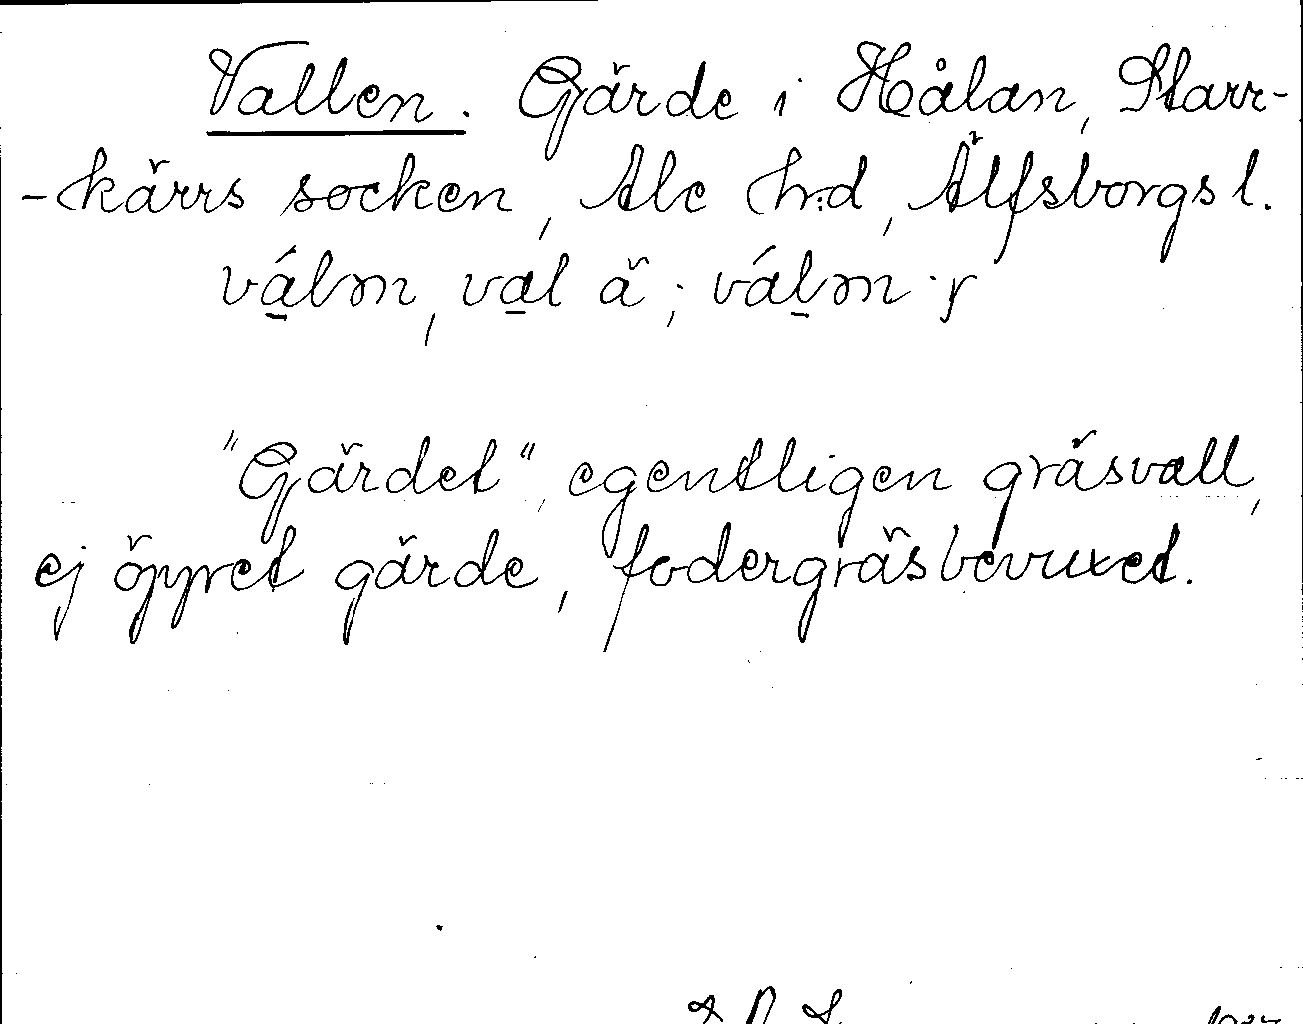 Vallen. Gärde i Hålan, Starr-
-kärrs socken, Ale h:d, Älfsborgs l.
vál̠m, val ä; vál̠m ·r

"Gärdet", egentligen gräsvall,
ej öppet gärde, fodergräsbevuxet.